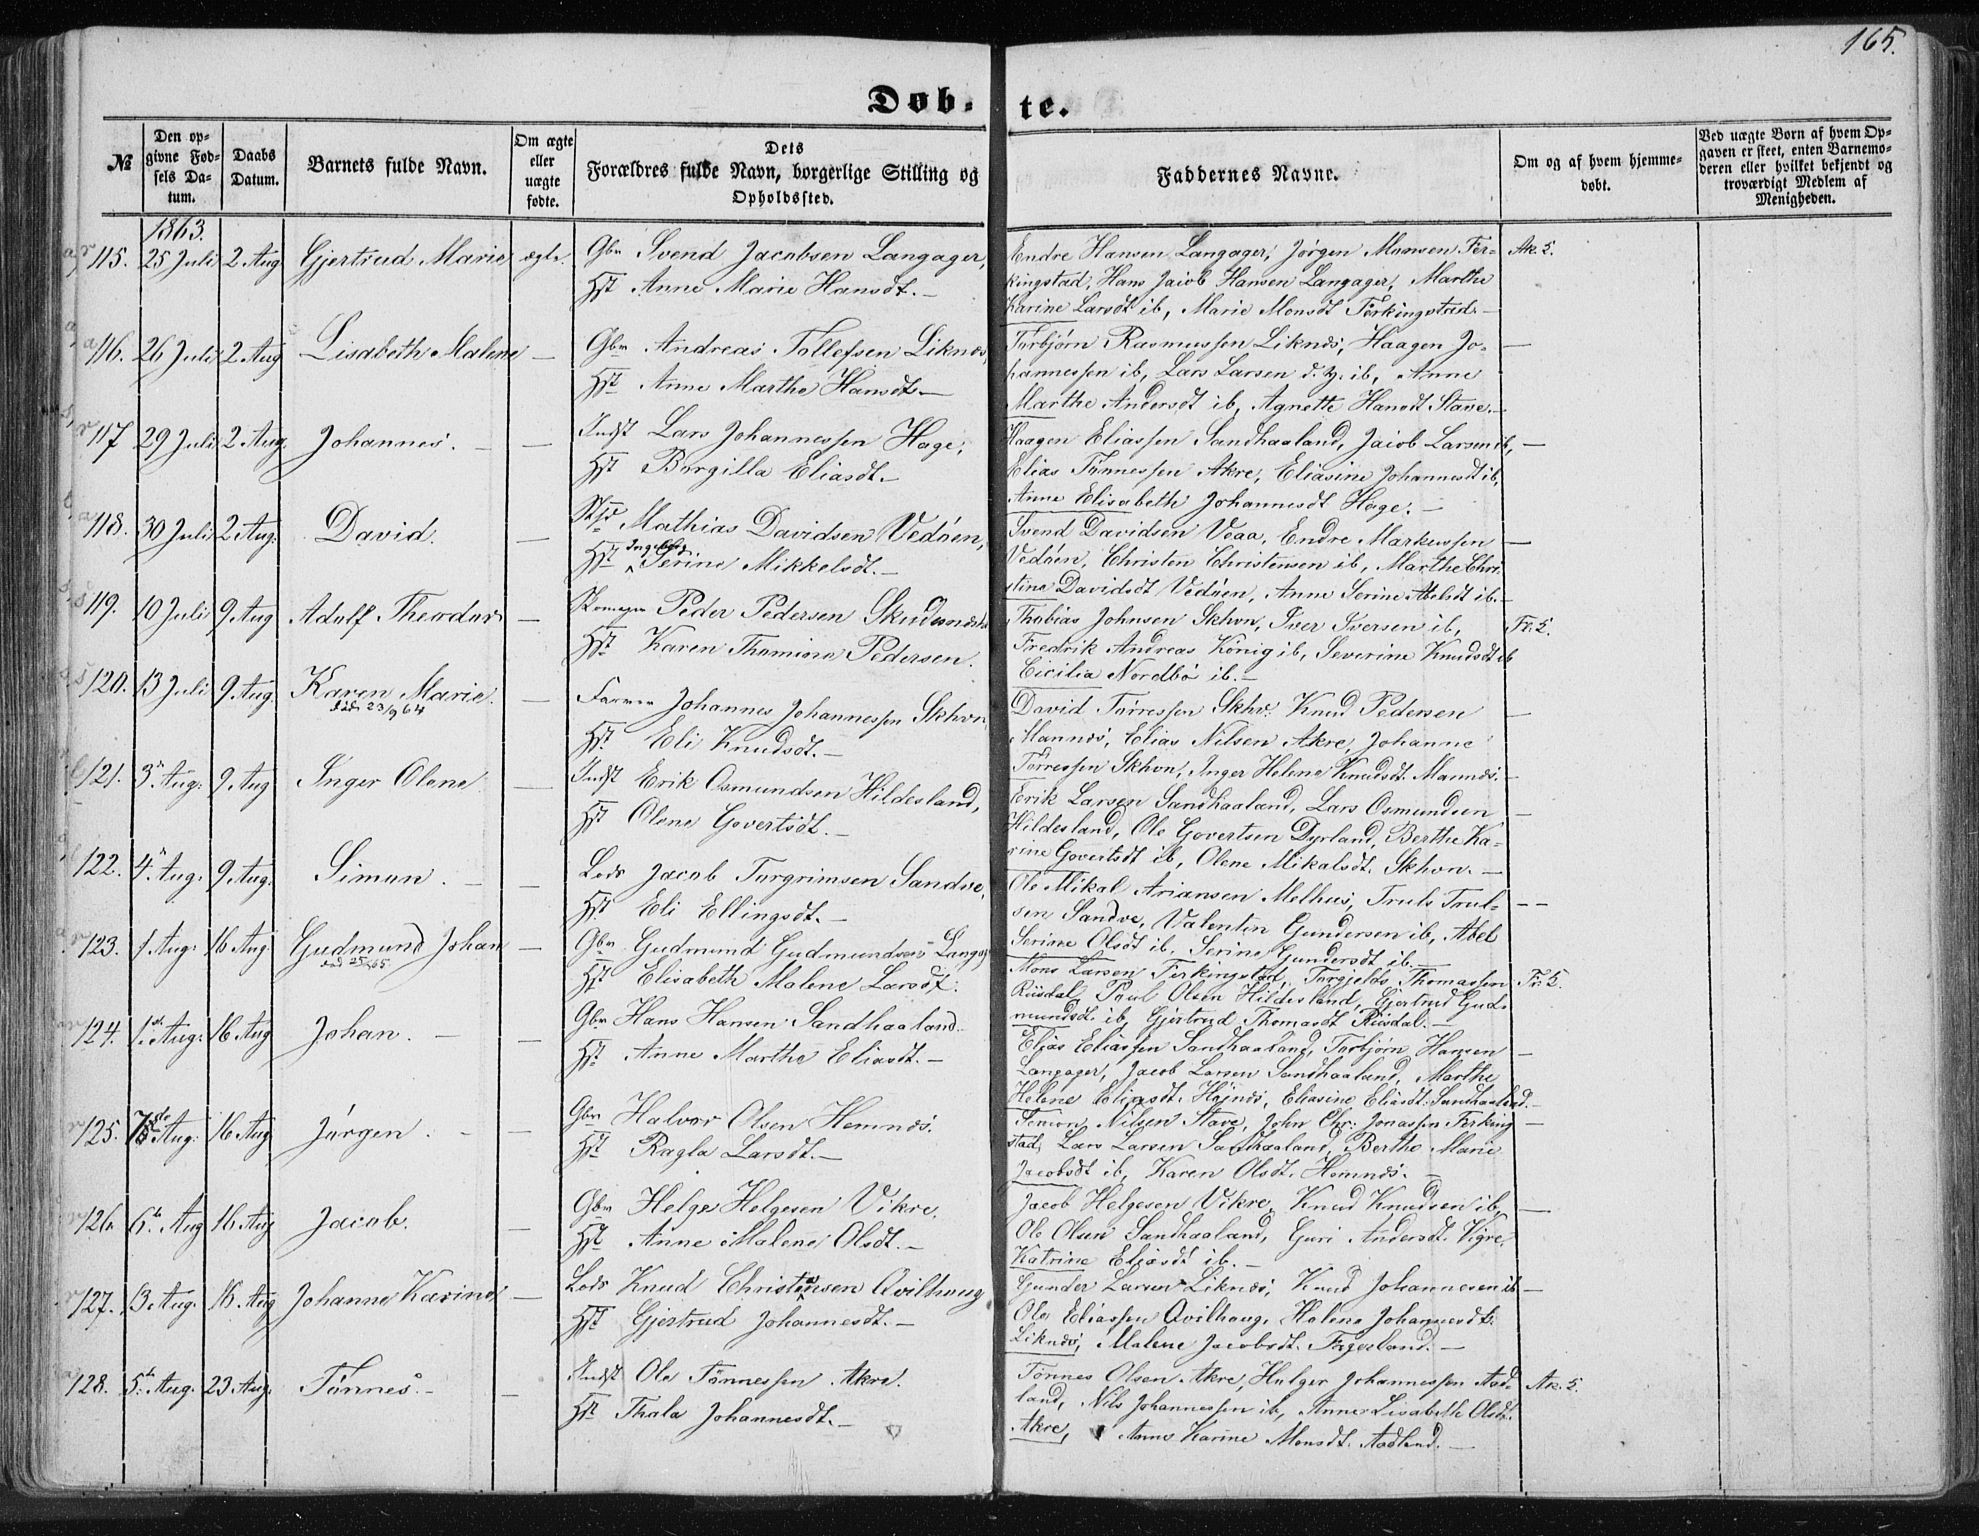 165.
Døb- te.
№
Den op-
givne Fød-
sels Da-
tum.
Daabs
Datum.
Barnets fulde Navn.
Om ægte
eller
uægte
fødte.
Dets
Forældres fulde Navn, borgerlige Stilling og
Opholdssted.
Faddernes Navne.
Om og af hvem hjemme-
døbt.
Ved uægte Børn af hvem Op-
gaven er skeet, enten Barnemo-
deren eller hvilket bekjendt og
troværdigt Medlem af
Menigheden.
1863.
115. 25 Juli 2 Aug Gjertrud Marie ægte. Gbr Svend Jacobsen Langager,
Hst Anne Marie Hansdt. –
Endre Hansen Langager, Jørgen Monsen Fer-
kingstad, Hans Jacob Hansen Langager, Marthe
Karine Larsdt ib, Marie Monsdt Ferkingstad. –
Ak. 5.
116. 26 Juli 2 Aug Lisabeth Malene – Gbr Andreas Tollefsen Liknes,
Hst Anne Marthe Hansdt –
Torbjørn Rasmussen Liknes, Haagen Jo-
hannessen ib, Lars Larsen d. y. ib, Anne
Marthe Andersdt ib, Agnethe Hansdt Stave. –
117 29 Juli 2 Aug. Johannes. – – Indst Lars Johannessen Hage,
Hst Borgilla Eliasdt. –
Haagen Eliassen Sandhaaland, Jacob Larsen ib,
Elias Tønnessen Akre, Eliasine Johannesdt ib,
Anne Elisabeth Johannesdt Hage. –
118. 30 Juli 2 Aug. David. – Mathias Davidsen Vedøen,
Hst Ingeb. Serine Mikkelsdt. –
Svend Davidsen Veaa, Endre Markussen
Vedøen, Christen Christensen ib, Marthe Chri-
stine Davidsdt Vedøen, Anne Serine Abelsdt ib. –
119. 10 Juli 9 Aug Adolf Theodor – Skomager Peder Pedersen Skudesnæsh
Hst Karen Thomine Pedersen.
Thobias Johnsen Skhvn, Iver Iversen ib,
Fredrik Andreas König ib, Severine Knudsdt ib
Cicilia Nordbø ib. –
Fr. 5.
120. 13 Juli 9 Aug. Karen Marie.
død 23/9 64
– Johannes Johannessen Skhvn,
Hst Eli Knudsdt. –
David Tørressen Skhv. Knud Pedersen
Mannes, Elias Nilsen Akre, Johanne
Tørressen Skhvn, Inger Helene Knudsdt Mannes. –
121. 3 Aug: 9 Aug Inger Olene – Indst Erik Osmundsen Hildesland,
Hst Olene Govertsdt. –
Erik Larsen Sandhaaland, Lars Osmundsen
Hildesland, Ole Govertsen Dyrland, Berthe Ka-
rine Govertsdt ib, Olene Mikalsdt. Skhvn. –
122. 4 Aug: 9 Aug. Simon. – – Lods Jacob Torgrimsen Sandve,
Hst Eli Ellingsdt. –
Ole Mikal Ariansen Melhus, Truls Trul-
sen Sandve, Valentin Gundersen ib, Abel
Serine Olsdt ib. Serine Gundersdt ib. –
123. 1 Aug: 16 Aug Gudmund Johan – Gbr Gudmund Gudmundsen Langag
død 25/ 65
Hst Elisabeth Malene Larsdt.
Mons Larsen Ferkingstad, Torgjelds Thomassen
Riisdal, Poul Olsen Hildesland, Gjertrud Gud-
mundsdt ib, Gjertrud Thomasdt Riisdal. –
Fr. 5.
124. 1ste Aug: 16 Aug Johan. – – Gbr Hans Hansen Sandhaaland.
Hst Anne Marthe Eliasdt. –
Elias Eliassen Sandhaaland, Torbjørn Hansen
Langager, Jacob Larsen Sandhaaland, Marthe
Helene Eliasdt. Høines, Eliasine Eliasdt. Sandhaaland. –
125. Aug: 16 Aug Jørgen. – – Gbr Halvor Olsen Hemnes.
Hst Ragla Larsdt. –
Simon Nilsen Stave, John Chr: Jonassen Ferking-
stad, Lars Larsen Sandhaaland, Berthe Marie
Jacobsdt ib, Karen Olsdt. Hemnes. –
126. 6te Aug 16 Aug Jacob. – Gbr Helge Helgesen Vikre.
Hst Anne Malene Olsdt. –
Jacob Helgesen Vikre, Knud Knudsen ib, –
Ole Olsen Sandhaaland, Guri Andersdt. Vigre,
Katrine Eliasdt ib. –
127. 13 Aug: 16 Aug Johanne Karine – Lods Knud Christensen Qvilhaug
Hst Gjertrud Johannesdt. –
Gunder Larsen Liknes, Knud Johannesen ib –
Ole Eliassen Qvilhaug, Helene Johannesdt.
Liknes, Malene Jacobsdt. Fagerland. –
128. 5te Aug: 23 Aug. Tønnes. – – Indst Ole Tønnessen Akre.
Hst Thala Johannesdt. –
Tønnes Olsen Akre, Holger Johannessen Aad-
land, Nils Johannessen ib, Anne Lisabeth Olsdt.
Akre, Anne Karine Monsdt. Aadland. –
Ak. 5.